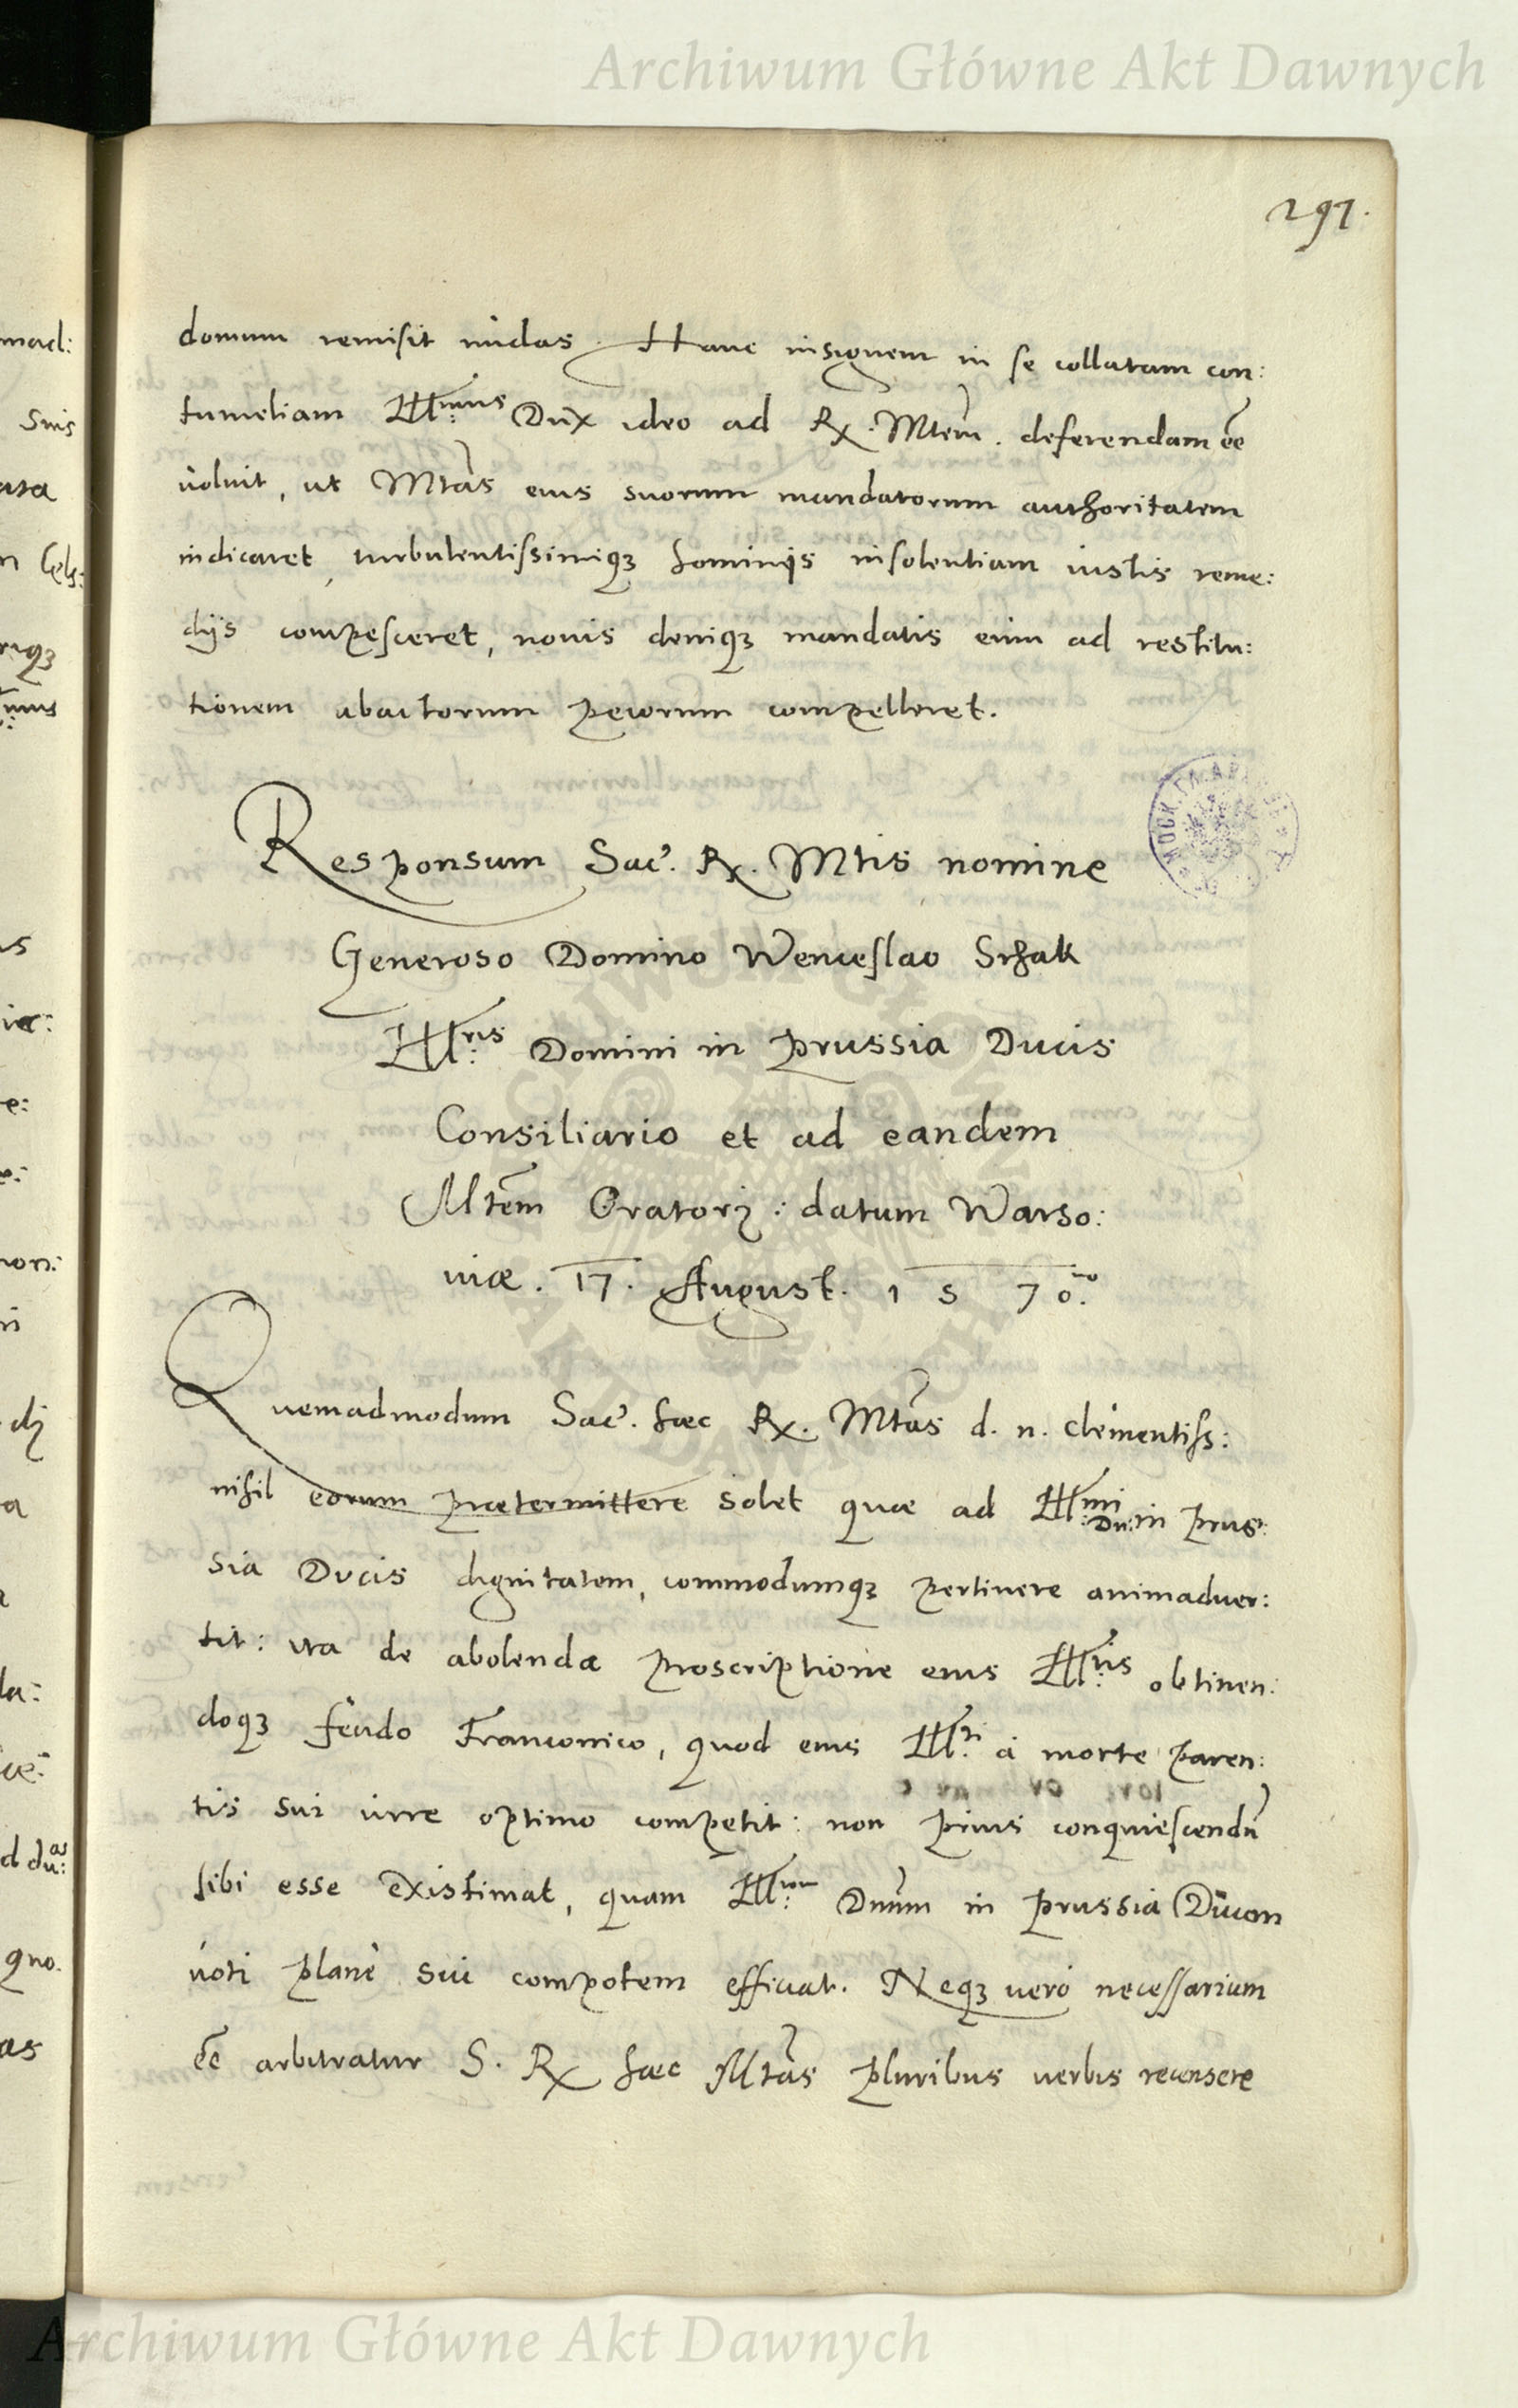 Archiwum Główne Akt Dawnych
297.
domum remisit nudas. Hanc insignem in se collatam con:
tumeliam Ill:mus Dux ideo ad Rx. Mtem. deferendam ee
uoluit, ut Mtas eius suorum mandatorum authoritatem
indicaret, turbulentissimiqȝ hominis insolentiam iustis reme:
dijs compesceret, nouis deniqȝ mandatis eum ad restitu:
tionem abactorum pecorum compelleret.
Responsum Sac. Rx. Mtis nomine
Generoso Domino Wenceslao Schak
Ill:ris Domini in Prussia Ducis
Consiliario et ad eandem
Mtem Oratori: datum Warso:
uiæ. 17. August. 1570.mo
Quemadmodum Sac. hæc Rx. Mtas d. n. clementiss:
nihil eorum prætermittere solet quæ ad Ill:mi Dni: in Prus:
sia Ducis dignitatem, commodumqȝ pertinere animaduer:
tit: ita de abolenda proscriptione eius Ill:ris obtinen:
doqȝ feudo Franconico, quod eius Ill:ri à morte paren:
tis sui iure optimo competit: non prius conquiescendu
sibi esse existimat, quam Ill:rem Dnum in Prussia Ducem
uoti planè sui compotem efficiat. Neqȝ uerò necessarium
ee arbitratur S. Rx hæc Mtas pluribus uerbis recensere
Archiwum Główne Akt Dawnych